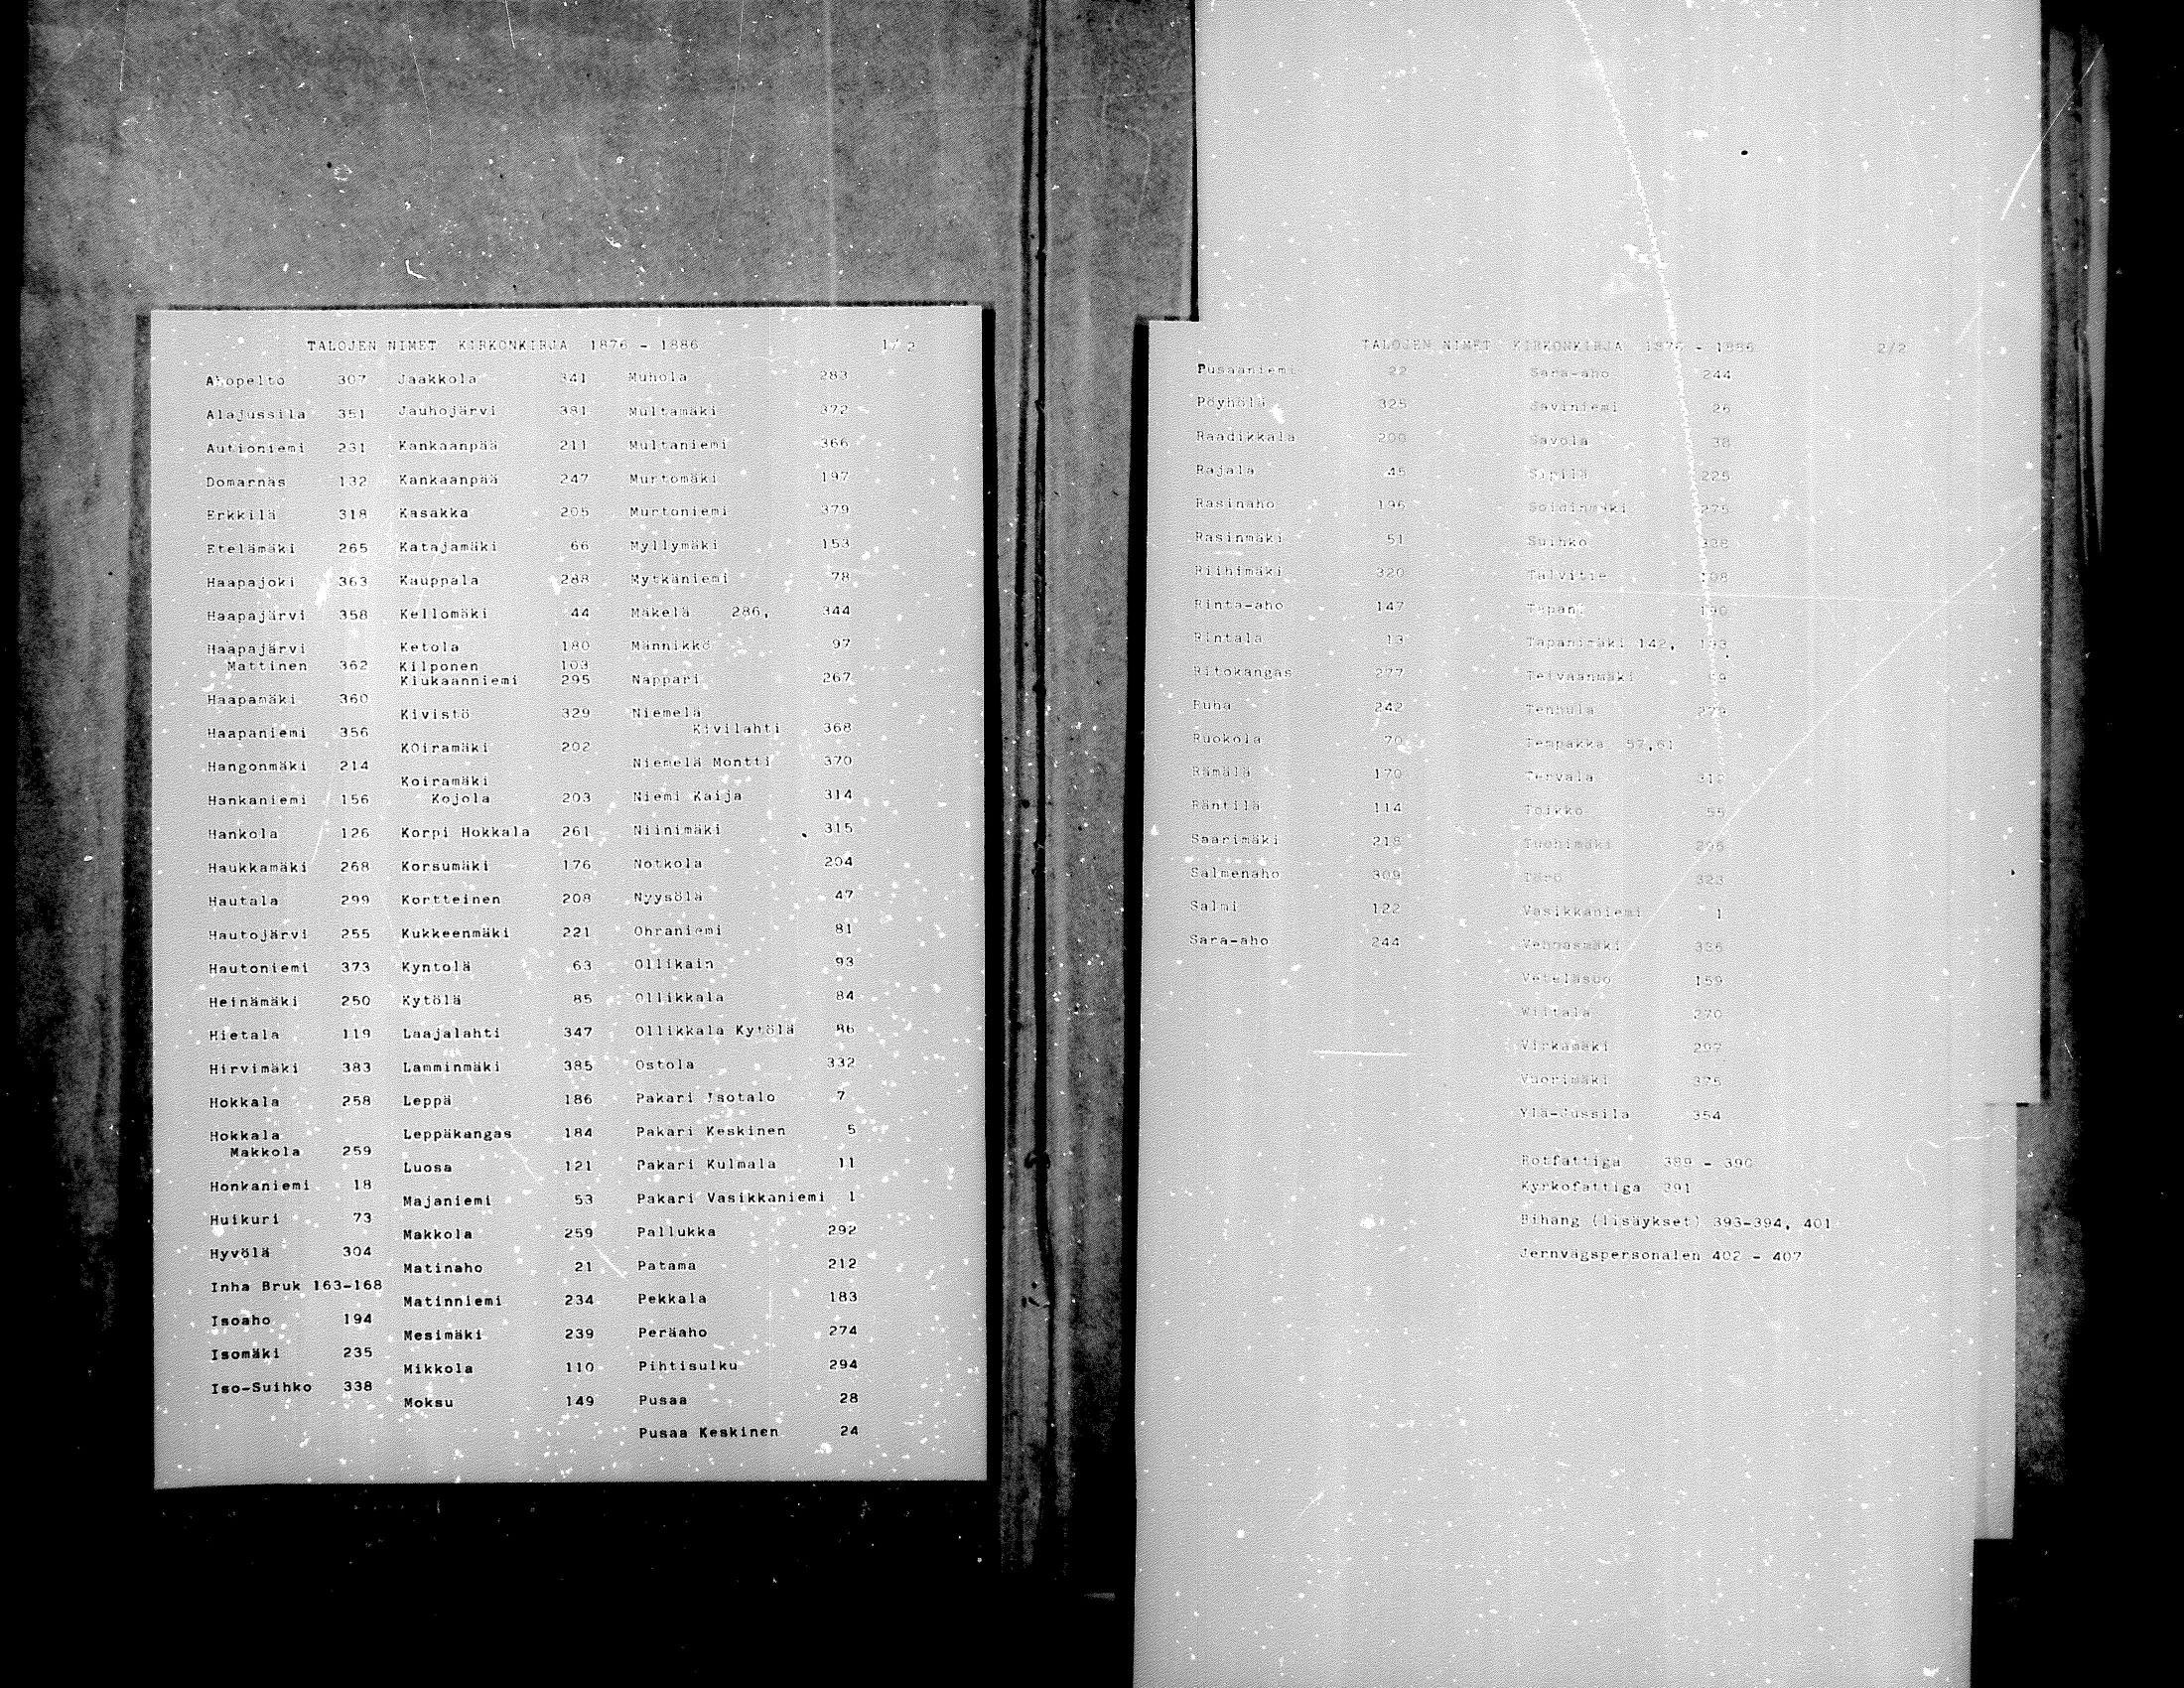 TALOJEN NIMET KIRKONKIRJA 1876 - 1886 1/2
Ahopelto 307
Alajussila 351
Autioniemi 231
Domarnäs 132
Erkkilä 318
Etelämäki 265
Haapajoki 363
Haapajärvi 358
Haapajärvi
Mattinen 362
Haapamäki 360
Haapaniemi 356
Hangonmäki 214
Hankaniemi 156
Hankola 126
Haukkamäki 268
Hautala 299
Hautojärvi 255
Hautoniemi 373
Heinämäki 250
Hietala 119
Hirvimäki 383
Hokkala 258
Hokkala
Makkola 259
Honkaniemi 18
Huikuri 73
Hyvölä 304
Inha Bruk 163-168
Isoaho 194
Isomäki 235
Iso-Suihko 338
Jaakkola 341
Jauhojärvi 381
Kankaanpää 211
Kankaanpää 247
Kasakka 205
Katajamäki 66
Kauppala 288
Kellomäki 44
Ketola 180
Kilponen 103
Kiukaanniemi 295
Kivistö 329
KOiramäki 202
Koiramäki
Kojola 203
Korpi Hokkala 261
Korsumäki 176
Kortteinen 208
Kukkeenmäki 221
Kyntolä 63
Kytölä 85
Laajalahti 347
Lamminmäki 385
Leppä 186
Leppäkangas 184
Luosa 121
Majaniemi 53
Makkola 259
Matinaho 21
Matinniemi 234
Mesimäki 239
Mikkola 110
Moksu 149
Muhola 283
Multamäki 372
Multaniemi 366
Murtomäki 197
Murtoniemi 379
Myllymäki 153
Mytkäniemi 78
Mäkelä 286, 344
Männikkö 97
Nappari 267
Niemelä
Kivilahti 368
Niemelä Montti 370
Niemi Kaija 314
Niinimäki 315
Notkola 204
Nyysölä 47
Ohraniemi 81
Ollikain 93
Ollikkala 84
Ollikkala Kytölä 86
Ostola 332
Pakari Isotalo 7
Pakari Keskinen 5
Pakari Kulmala 11
Pakari Vasikkaniemi 1
Pallukka 292
Patama 212
Pekkala 183
Peräaho 274
Pihtisulku 294
Pusaa 28
Pusaa Keskinen 24
TALOJEN NIMET KIRKONKIRJA 1876 - 1886 2/2
Pusaaniemi 22
Pöyhölä 325
Raadikkala 200
Rajala 45
Rasinaho 196
Rasinmäki 51
Riihimäki 320
Rinta-aho 147
Rintala 13
Ritokangas 277
Ruha 242
Ruokola 70
Rämälä 170
Räntilä 114
Saarimäki 218
Salmenaho 309
Salmi 122
Sara-aho 244
Sara-aho 244
Saviniemi 26
Savola 38
Sipilä 225
Soidinmäki 275
Suihko 338
Talvitie
Tapani 190
Tapanimäki 142, 193
Teivaanmäki
Tenhula 279
Tempakka 57,61
Tervala 312
Toikko 55
Tuohimäki 296
323
Vasikkaniemi 1
Vehmasmäki 336
Veteläsuo 159
Wiitala 270
Virkamäki 297
Vuorimäki 375
Ylä-Jussila 354
Rotfattiga 389 - 390
Kyrkofattiga 391
Bihang (lisäykset) 393-394, 401
Jernvägspersonalen 402 - 407